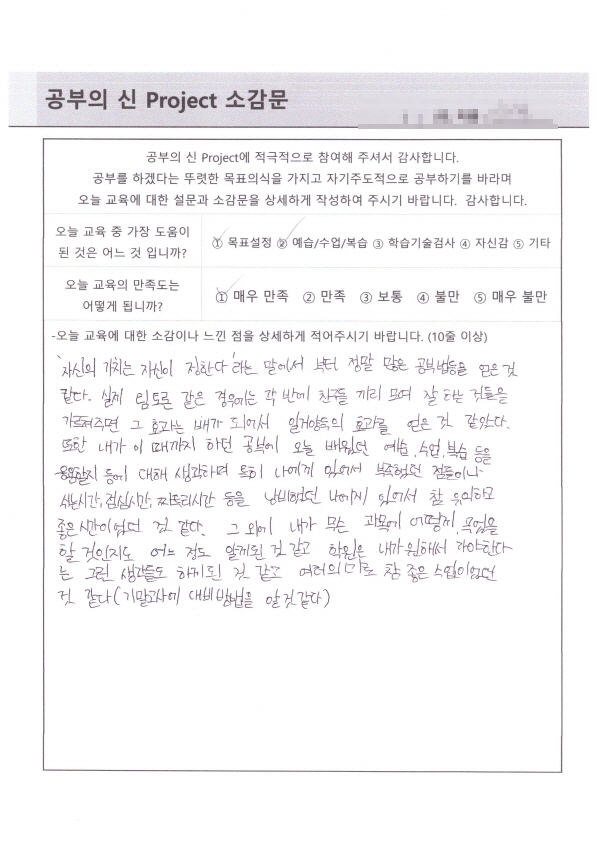 공부의 신 Project 소감문
공부의 신 Project에 적극적으로 참여해 주셔서 감사합니다.
공부를 하겠다는 뚜렷한 목표의식을 가지고 자기주도적으로 공부하기를 바라며
오늘 교육에 대한 설문과 소감문을 상세하게 작성하여 주시기 바랍니다. 감사합니다.
오늘 교육 중 가장 도움이
된 것은 어느 것 입니까?
① 목표설정 ② 예습/수업/복습 ③ 학습기술검사 ④ 자신감 ⑤ 기타
오늘 교육의 만족도는
어떻게 됩니까?
① 매우 만족 ② 만족 ③ 보통 ④ 불만 ⑤ 매우 불만
-오늘 교육에 대한 소감이나 느낀 점을 상세하게 적어주시기 바랍니다. (10줄 이상)
'자신의 가치는 자신이 정한다'라는 말에서 부터 정말 많은 공부법등을 얻은 것
같다. 실제 팀토론 같은 경우에는 각 반에 친구들 끼리 모여 잘 하는 것들을
가르쳐주면 그 효과는 배가 되어서 일거양득의 효과를 얻은 것 같았다.
또한 내가 이 때까지 하던 공부에 오늘 배웠던 예습, 수업, 복습 등을
등에 대해 생각하며 특히 나에게 있어서 부족했던 점들이나
쉬는시간, 점심시간, 짜투리시간 등을 낭비했던 나에게 있어서 참 유의하고
좋은 시간이었던 것 같다. 그 외에 내가 무슨 과목에 어떻게 학업을
할 것인지도 어느 정도 알게된 것 같고 학원은 내가 원해서 가야한다
는 그런 생각들도 하게된 것 같고 여러의미로 참 좋은 수업이었던
것 같다 (기말고사에 대비방법을 알 것 같다)